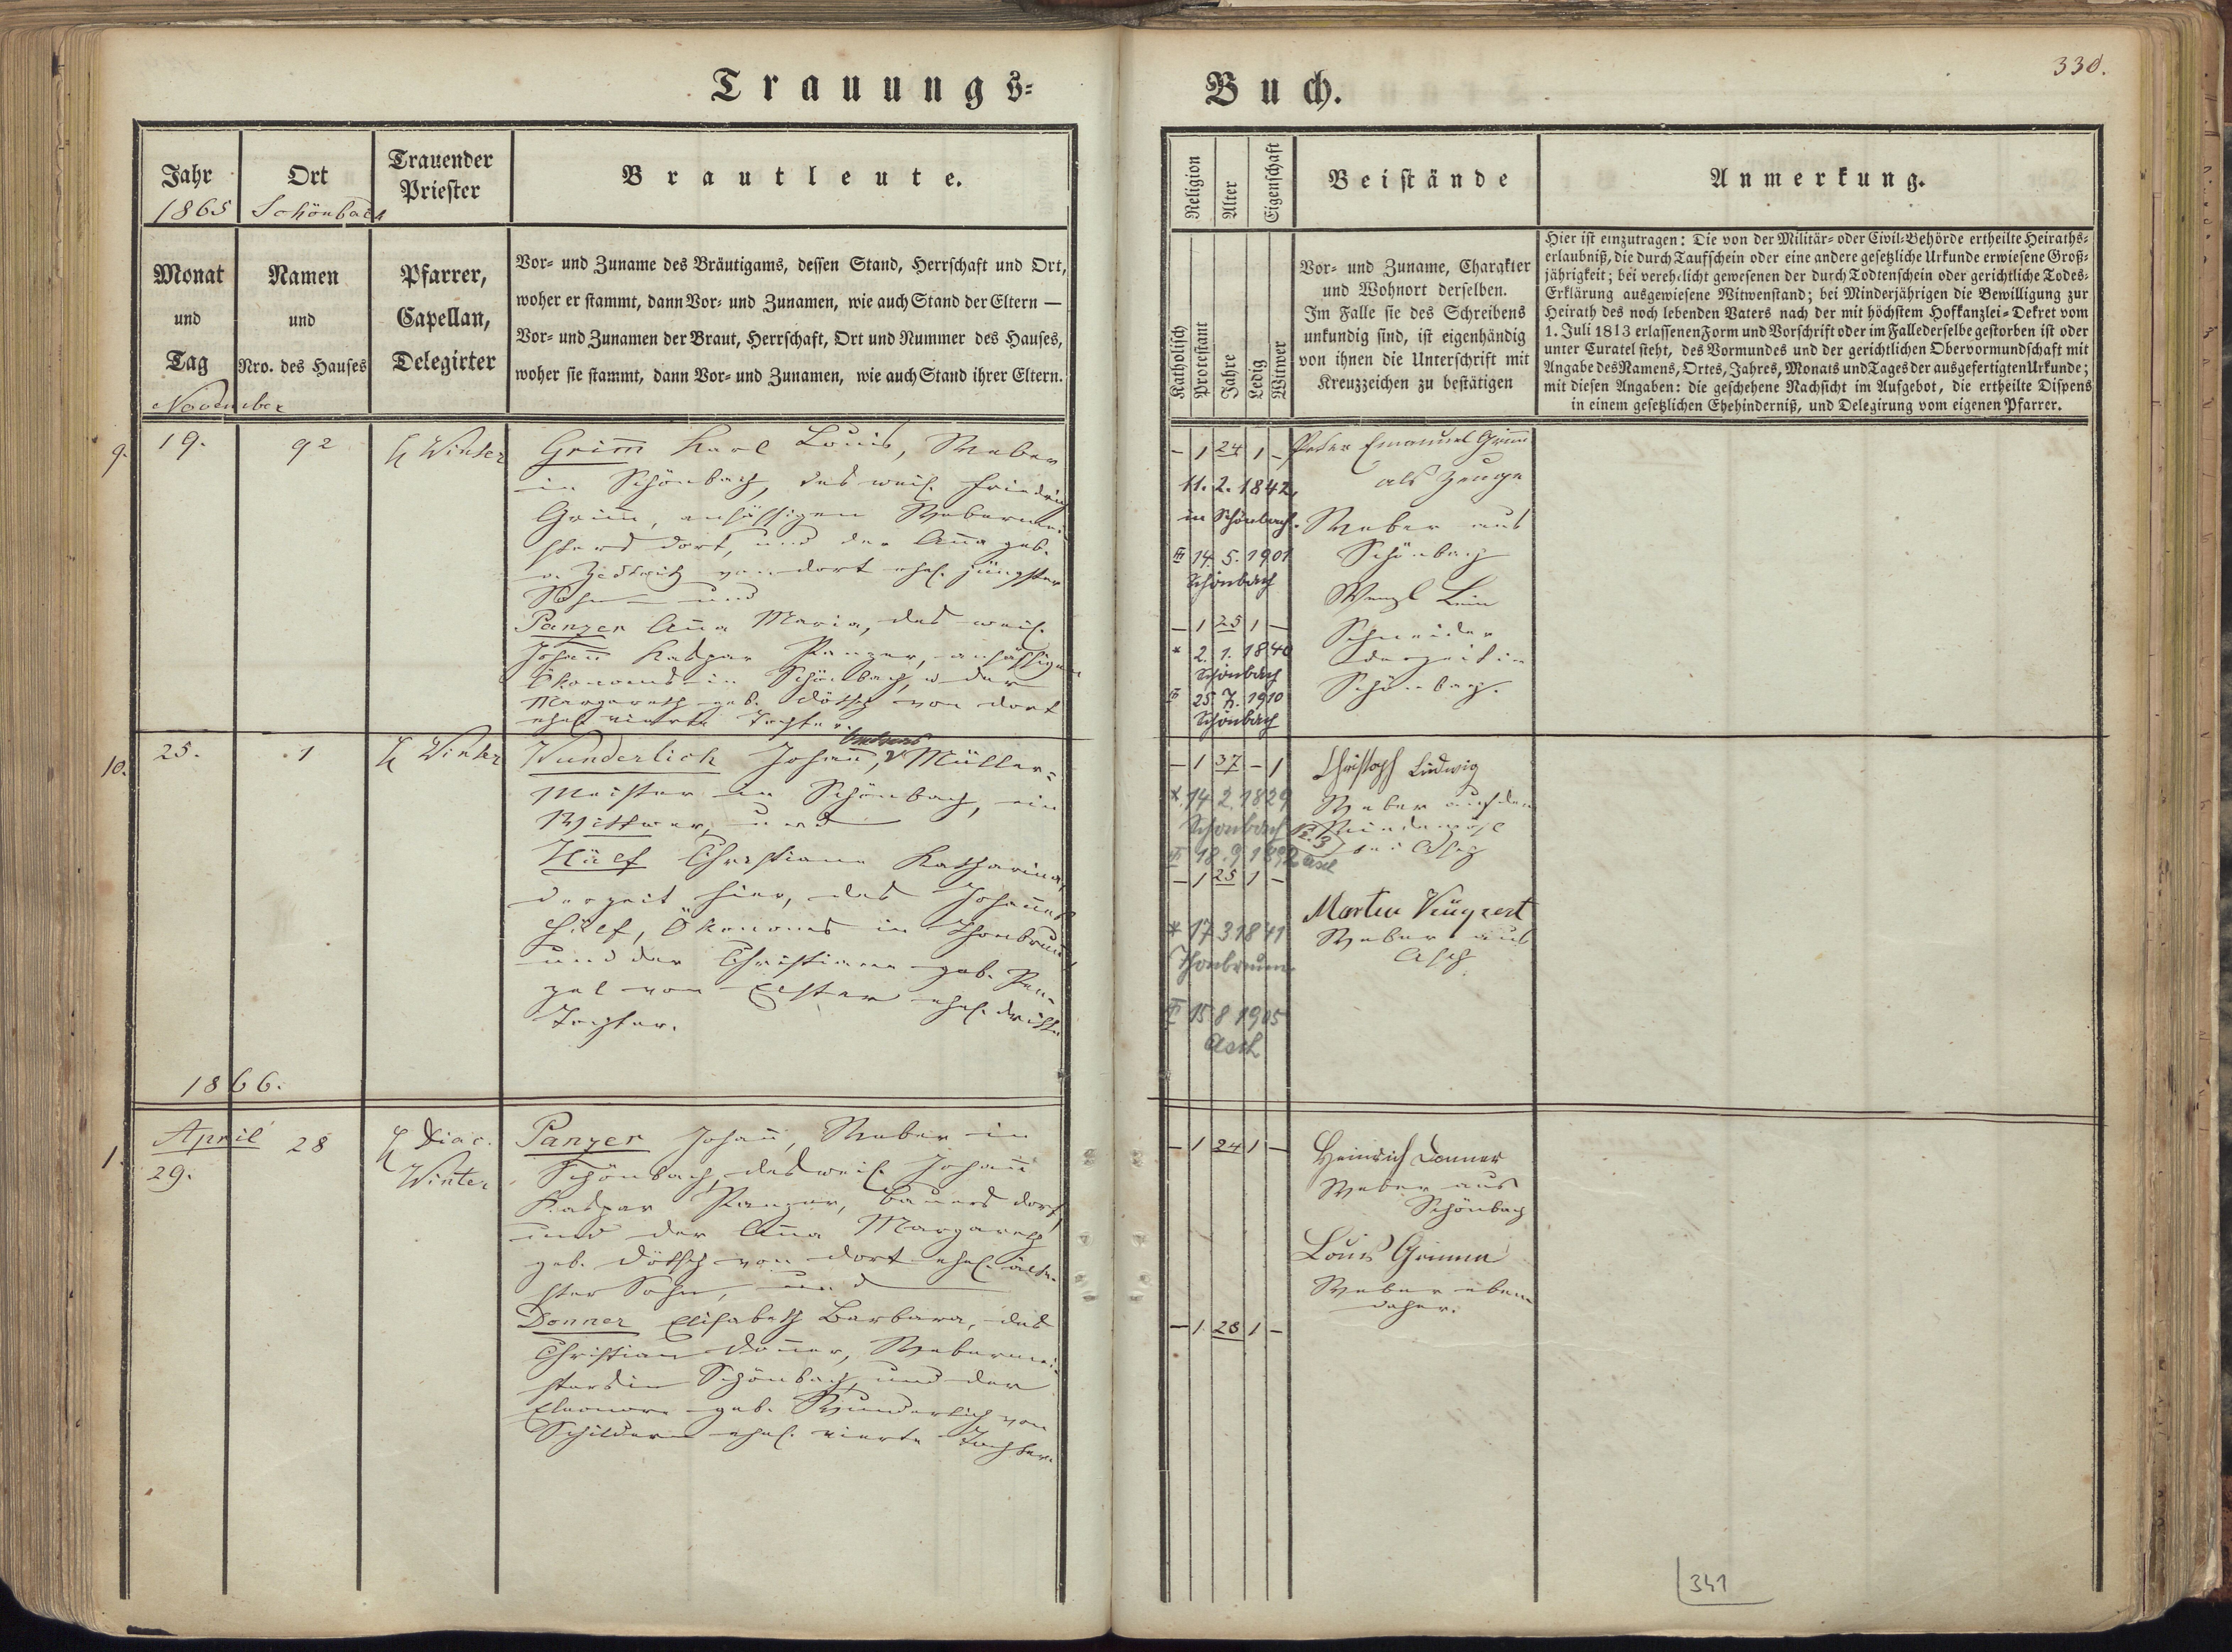 Trauungs=
Buch.
330.
Jahr
1865
Ort
Schönbach
Trauender
Priester
Brautleute.
Monat
und
Tag
November
Namen
und
Nro. des Hauses
Pfarrer,
Capellan,
Delegirter
Vor- und Zuname des Bräutigams, dessen Stand, Herrschaft und Ort,
woher er stammt, dann Vor- und Zunamen, wie auch Stand der Eltern —
Vor- und Zunamen der Braut, Herrschaft, Ort und Nummer des Hauses,
woher sie stammt, dann Vor- und Zunamen, wie auch Stand ihrer Eltern.
9.
19.
92
Winter
Grim̅ Karl Louis, Weber
in Schönbach, des weil. Friedrich
Grim̅, ansässigen Webermei-
sters dort, und der An̅a geb.
v. Zedtwitz von dort ehel. jüngster
Sohn und
Panzer An̅a Maria, des weil.
Johan̅ Kaspar Panzer, ansässigen
Ökonoms in Schönbach, u der
Margareth geb. Dötsch von dort
ehel vierte Tochter.
10.
25.
1
Winter
Wunderlich Johan̅, Müller-
Meister in Schönbach, ein
Wittwer, und
Hülf Christiana Katharina,
derzeit hier, des
Hülf, Ökonoms in Thonbrunn
und der Christiana geb.
von Elster ehel. dritte
Tochter.
1866.
1.
April
29.
28
Diac.
Winter
Panzer Johan̅, Weber in
Schönbach, des weil. Johan̅
Kaspar Panzer, Bauers dort,
und der An̅a Margareth
geb. Dötsch von dort ehel. älte-
ster Sohn, und
Donner Elisabeth Barbara, des
Christian Don̅er, Webermei-
sters in Schönbach und der
Eleonore geb. Wunderlich von
Schildern ehel. vierte Tochter.
Religion
Alter
Eigenschaft
Beistände
Anmerkung.
Katholisch
Protestant
Jahre
Ledig
Witwer
Vor- und Zuname, Charakter
und Wohnort derselben.
Im Falle sie des Schreibens
unkundig sind, ist eigenhändig
von ihnen die Unterschrift mit
Kreuzzeichen zu bestätigen
Hier ist einzutragen: Die von der Militär- oder Civil-Behörde ertheilte Heiraths-
erlaubniß, die durch Taufschein oder eine andere gesetzliche Urkunde erwiesene Groß-
jährigkeit; bei verehelicht gewesenen der durch Todtenschein oder gerichtliche Todes-
Erklärung ausgewiesene Witwenstand; bei Minderjährigen die Bewilligung zur
Heirath des noch lebenden Vaters nach der mit höchstem Hofkanzlei-Dekret vom
1. Juli 1813 erlassenen Form und Vorschrift oder im Falle derselbe gestorben ist oder
unter Curatel steht, des Vormundes und der gerichtlichen Obervormundschaft mit
Angabe des Namens, Ortes, Jahres, Monats und Tages der ausgefertigten Urkunde;
mit diesen Angaben: die geschehene Nachsicht im Aufgebot, die ertheilte Dispens
in einem gesetzlichen Ehehinderniß, und Delegirung vom eigenen Pfarrer.
– 1 24 1 –
11. 2. 1842,
in Schönbach.
14. 5. 1901
Schönbach
– 1 25 1 –
* 2. 1. 1840
Schönbach
25. 7. 1910
Schönbach
Peter Emanuel Grimm
als Zeuge
Weber aus
Schönbach
Wenzl
Schneider
derzeit in
Schönbach.
– 1 37 – 1
* 14 2. 1829
Schönbach
18. 9. 1892 Asch
– 1 25 1 –
* 17 3 1841
Thonbrunn
15 8 1905
Asch
Christoph Ludwig
Weber auf der
bei Asch
Martin
Weber aus
Asch
– 1 24 1 –
– 1 28 1 –
Heinrich Donner
Weber aus
Schönbach
Louis Grimm
Weber eben
daher.
341